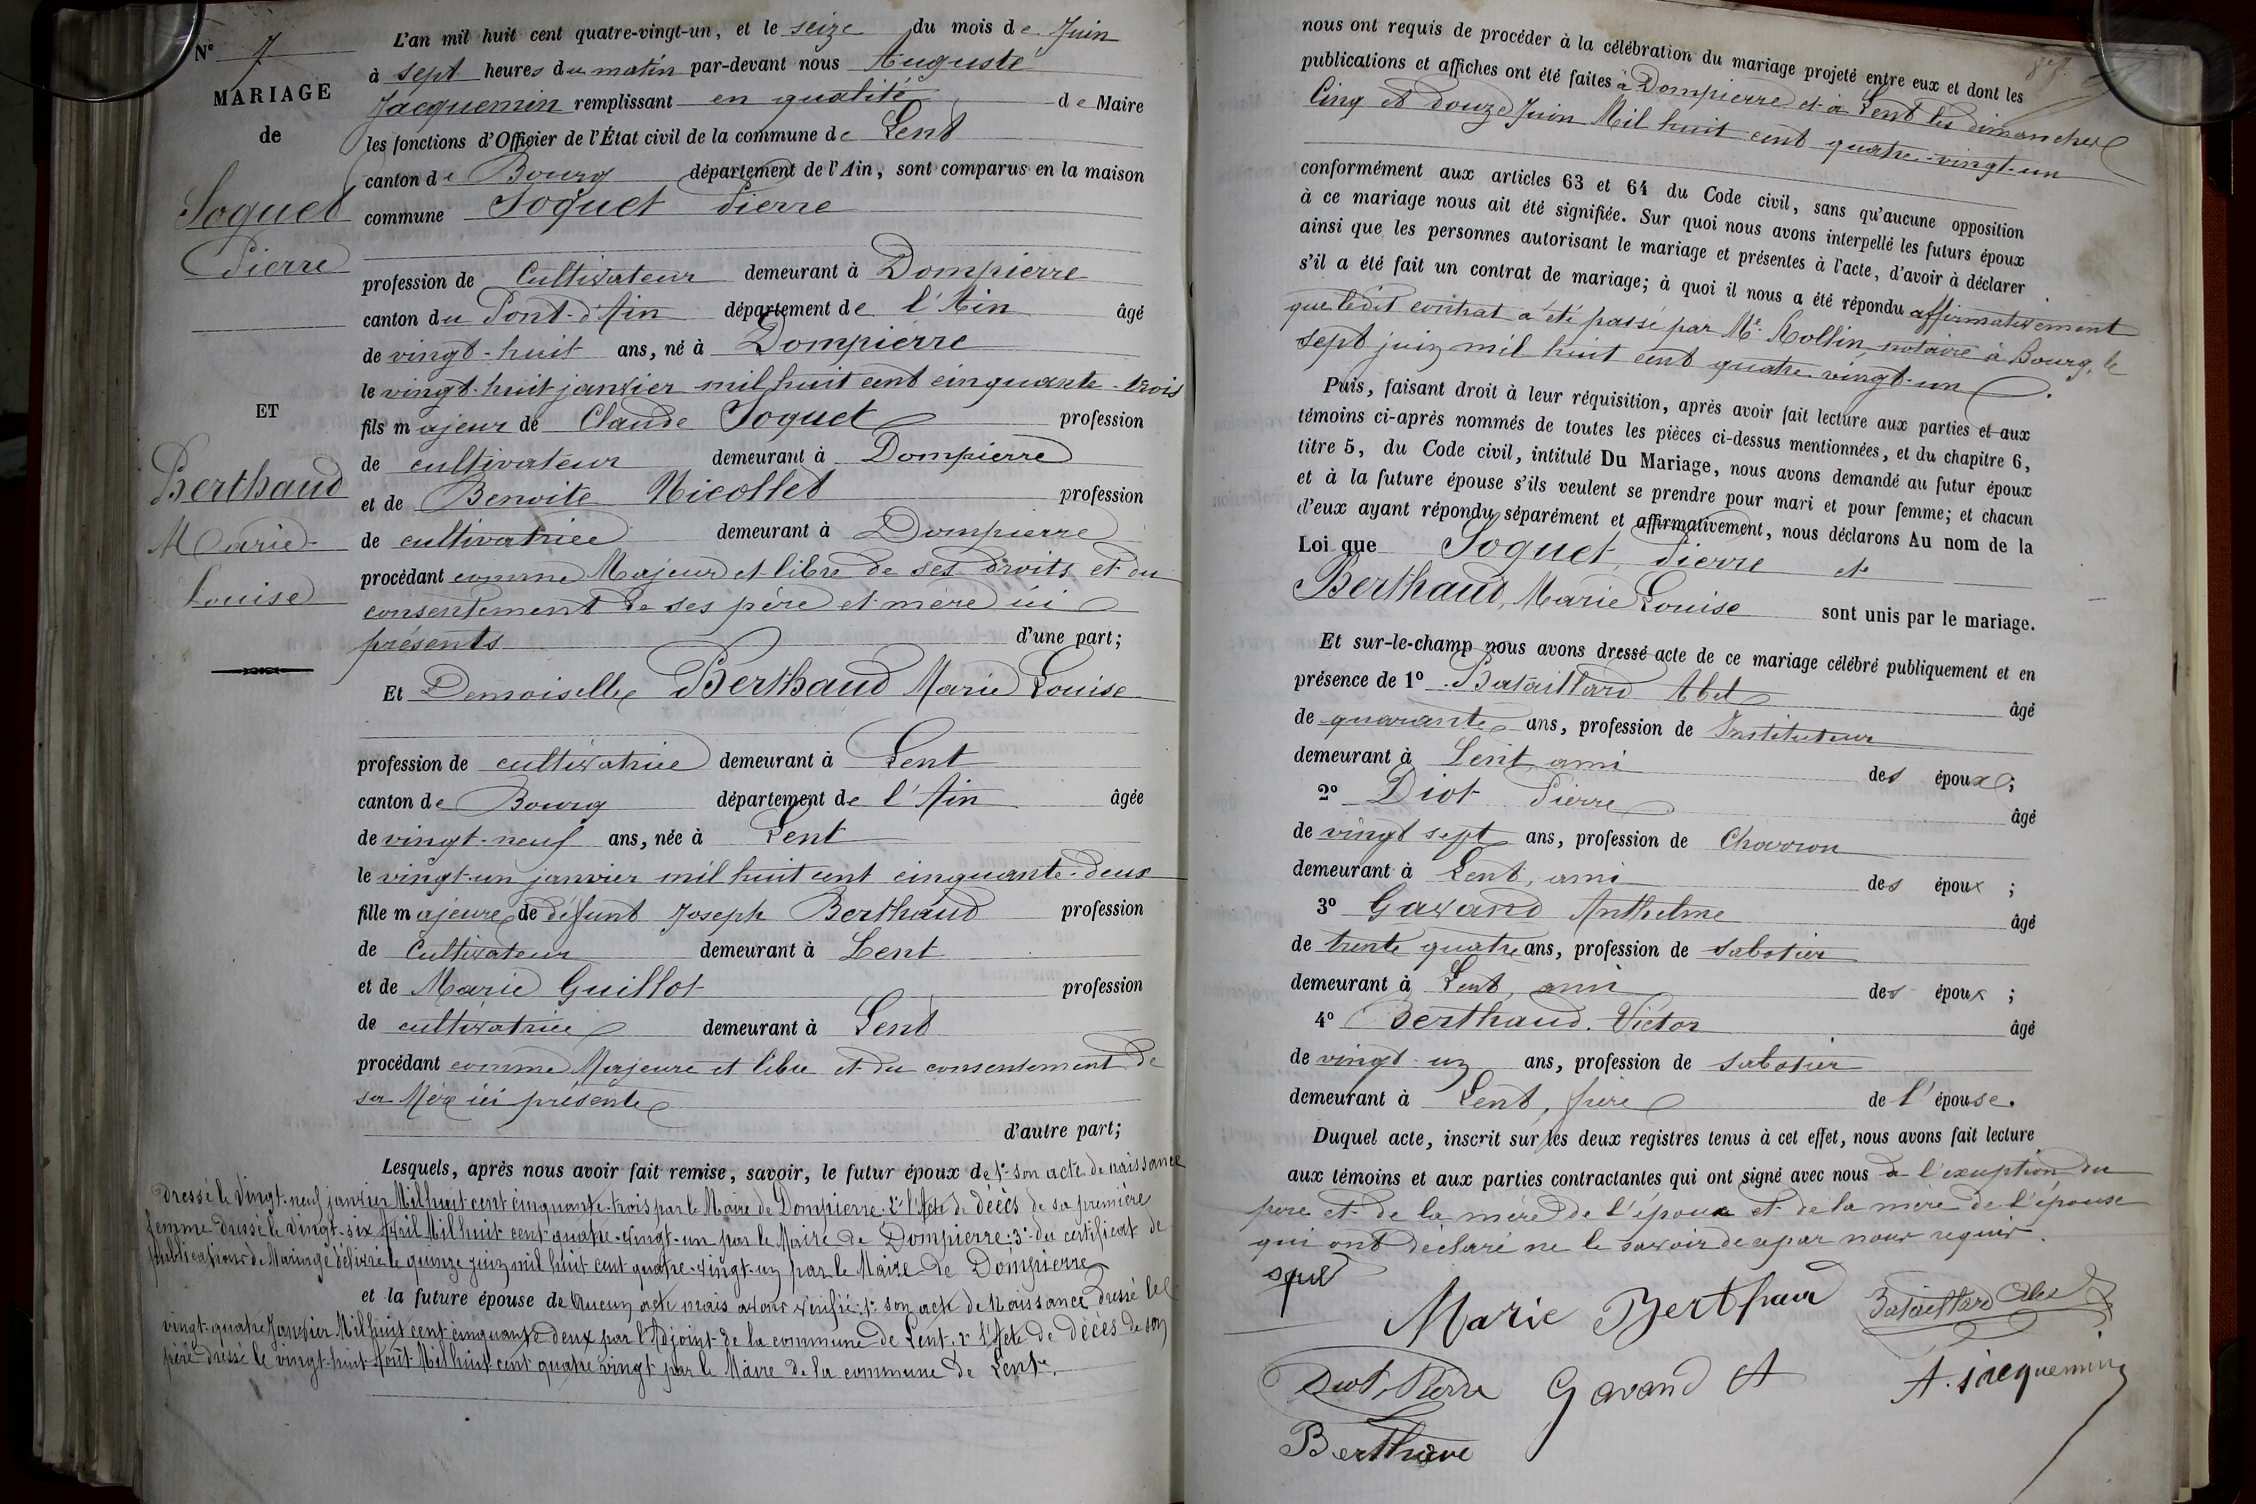 N° 7
MARIAGE
de
Soquet
Pierre
ET
Berthaud
Marie
Louise
L'an mil huit cent quatre-vingt-un, et le seize du mois de Juin
à sept heures du matin par-devant nous Auguste
Jacquemin remplissant en qualité de Maire
les fonctions d'Officier de l'État civil de la commune de Lent
canton de Bourg département de l'Ain, sont comparus en la maison
commune Soquet Pierre
profession de Cultivateur demeurant à Dompierre
canton du Pont-d'Ain département de l'Ain âgé
de vingt-huit ans, né à Dompierre
le vingt-huit janvier mil huit cent cinquante-trois
fils majeur de Claude Soquet profession
de cultivateur demeurant à Dompierre
et de Benoite Nicollet profession
de cultivatrice demeurant à Dompierre
procédant comme Majeur et libre de ses droits et du
consentement de ses père et mère ici
présents d'une part;
Et Demoiselle Berthaud Marie Louise
profession de cultivatrice demeurant à Lent
canton de Bourg département de l'Ain âgée
de vingt-neuf ans, née à Lent
le vingt-un janvier mil huit cent cinquante-deux
fille majeure de défunt Joseph Berthaud profession
de Cultivateur demeurant à Lent
et de Marie Guillot profession
de cultivatrice demeurant à Lent
procédant comme Majeure et libre et du consentement de
sa Mère ici présente
d'autre part;
Lesquels, après nous avoir fait remise, savoir, le futur époux de 1° son acte de naissance
dressé le vingt-neuf janvier Mil huit cent cinquante-trois par le Maire de Dompierre; 2° l'Acte de décès de sa première
femme dressé le vingt-six Avril Mil huit cent quatre-vingt-un par le Maire de Dompierre; 3° du certificat de
publications de Mariage délivré le quinze juin mil huit cent quatre-vingt-un par le Maire de Dompierre
et la future épouse de Aucun acte mais avons vérifié: 1° son acte de Naissance dressé le
vingt-quatre Janvier Mil huit cent cinquante deux par l'Adjoint de la commune de Lent. 2° l'Acte de décès de son
père dressé le vingt-huit Août Mil huit cent quatre vingt par le Maire de la commune de Lent.
nous ont requis de procéder à la célébration du mariage projeté entre eux et dont les
publications et affiches ont été faites à Dompierre et à Lent les dimanches
Cinq et douze Juin Mil huit cent quatre-vingt-un
conformément aux articles 63 et 64 du Code civil, sans qu'aucune opposition
à ce mariage nous ait été signifiée. Sur quoi nous avons interpellé les futurs époux
ainsi que les personnes autorisant le mariage et présentes à l'acte, d'avoir à déclarer
s'il a été fait un contrat de mariage; à quoi il nous a été répondu affirmativement
que ledit contrat a été passé par Me Rollin, notaire à Bourg, le
sept juin mil huit cent quatre-vingt-un.
Puis, faisant droit à leur réquisition, après avoir fait lecture aux parties et aux
témoins ci-après nommés de toutes les pièces ci-dessus mentionnées, et du chapitre 6,
titre 5, du Code civil, intitulé Du Mariage, nous avons demandé au futur époux
et à la future épouse s'ils veulent se prendre pour mari et pour femme; et chacun
d'eux ayant répondu séparément et affirmativement, nous déclarons Au nom de la
Loi que Soquet, Pierre et
Berthaud, Marie Louise sont unis par le mariage.
Et sur-le-champ nous avons dressé acte de ce mariage célébré publiquement et en
présence de 1° Bataillard Abel âgé
de quarante ans, profession de Instituteur
demeurant à Lent, ami des époux;
2° Diot Pierre âgé
de vingt sept ans, profession de Charron
demeurant à Lent, ami des époux;
3° Gavand Anthelme âgé
de trente quatre ans, profession de sabotier
demeurant à Lent, ami des époux;
4° Berthaud Victor âgé
de vingt-un ans, profession de sabotier
demeurant à Lent, frère de l'épouse.
Duquel acte, inscrit sur les deux registres tenus à cet effet, nous avons fait lecture
aux témoins et aux parties contractantes qui ont signé avec nous à l'exception du
père et de la mère de l'époux et de la mère de l'épouse
qui ont déclaré ne le savoir de ce par nous requis.
Marie Berthaud
Bataillard Abel
Diot Pierre
Gavand A
A. Jacquemin